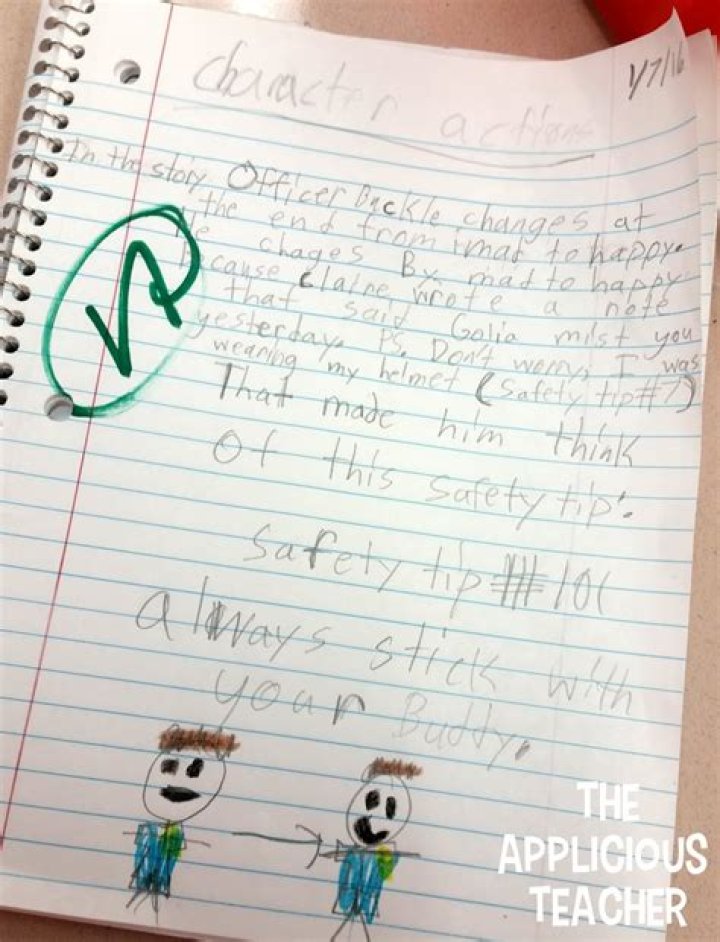 1/7/16
character actions
In the story Officer Buckle changes at
the end from mad to happy.
He chages By mad to happy
Because Claire wrote a note
that said Golia mist you
yesterday. PS. Don't worry, I was
wearing my helmet (Safety tip #7)
That made him think
Of this safety tip:
Safety tip # 101
always stick with
your Buddy.
THE
APPLICIOUS
TEACHER